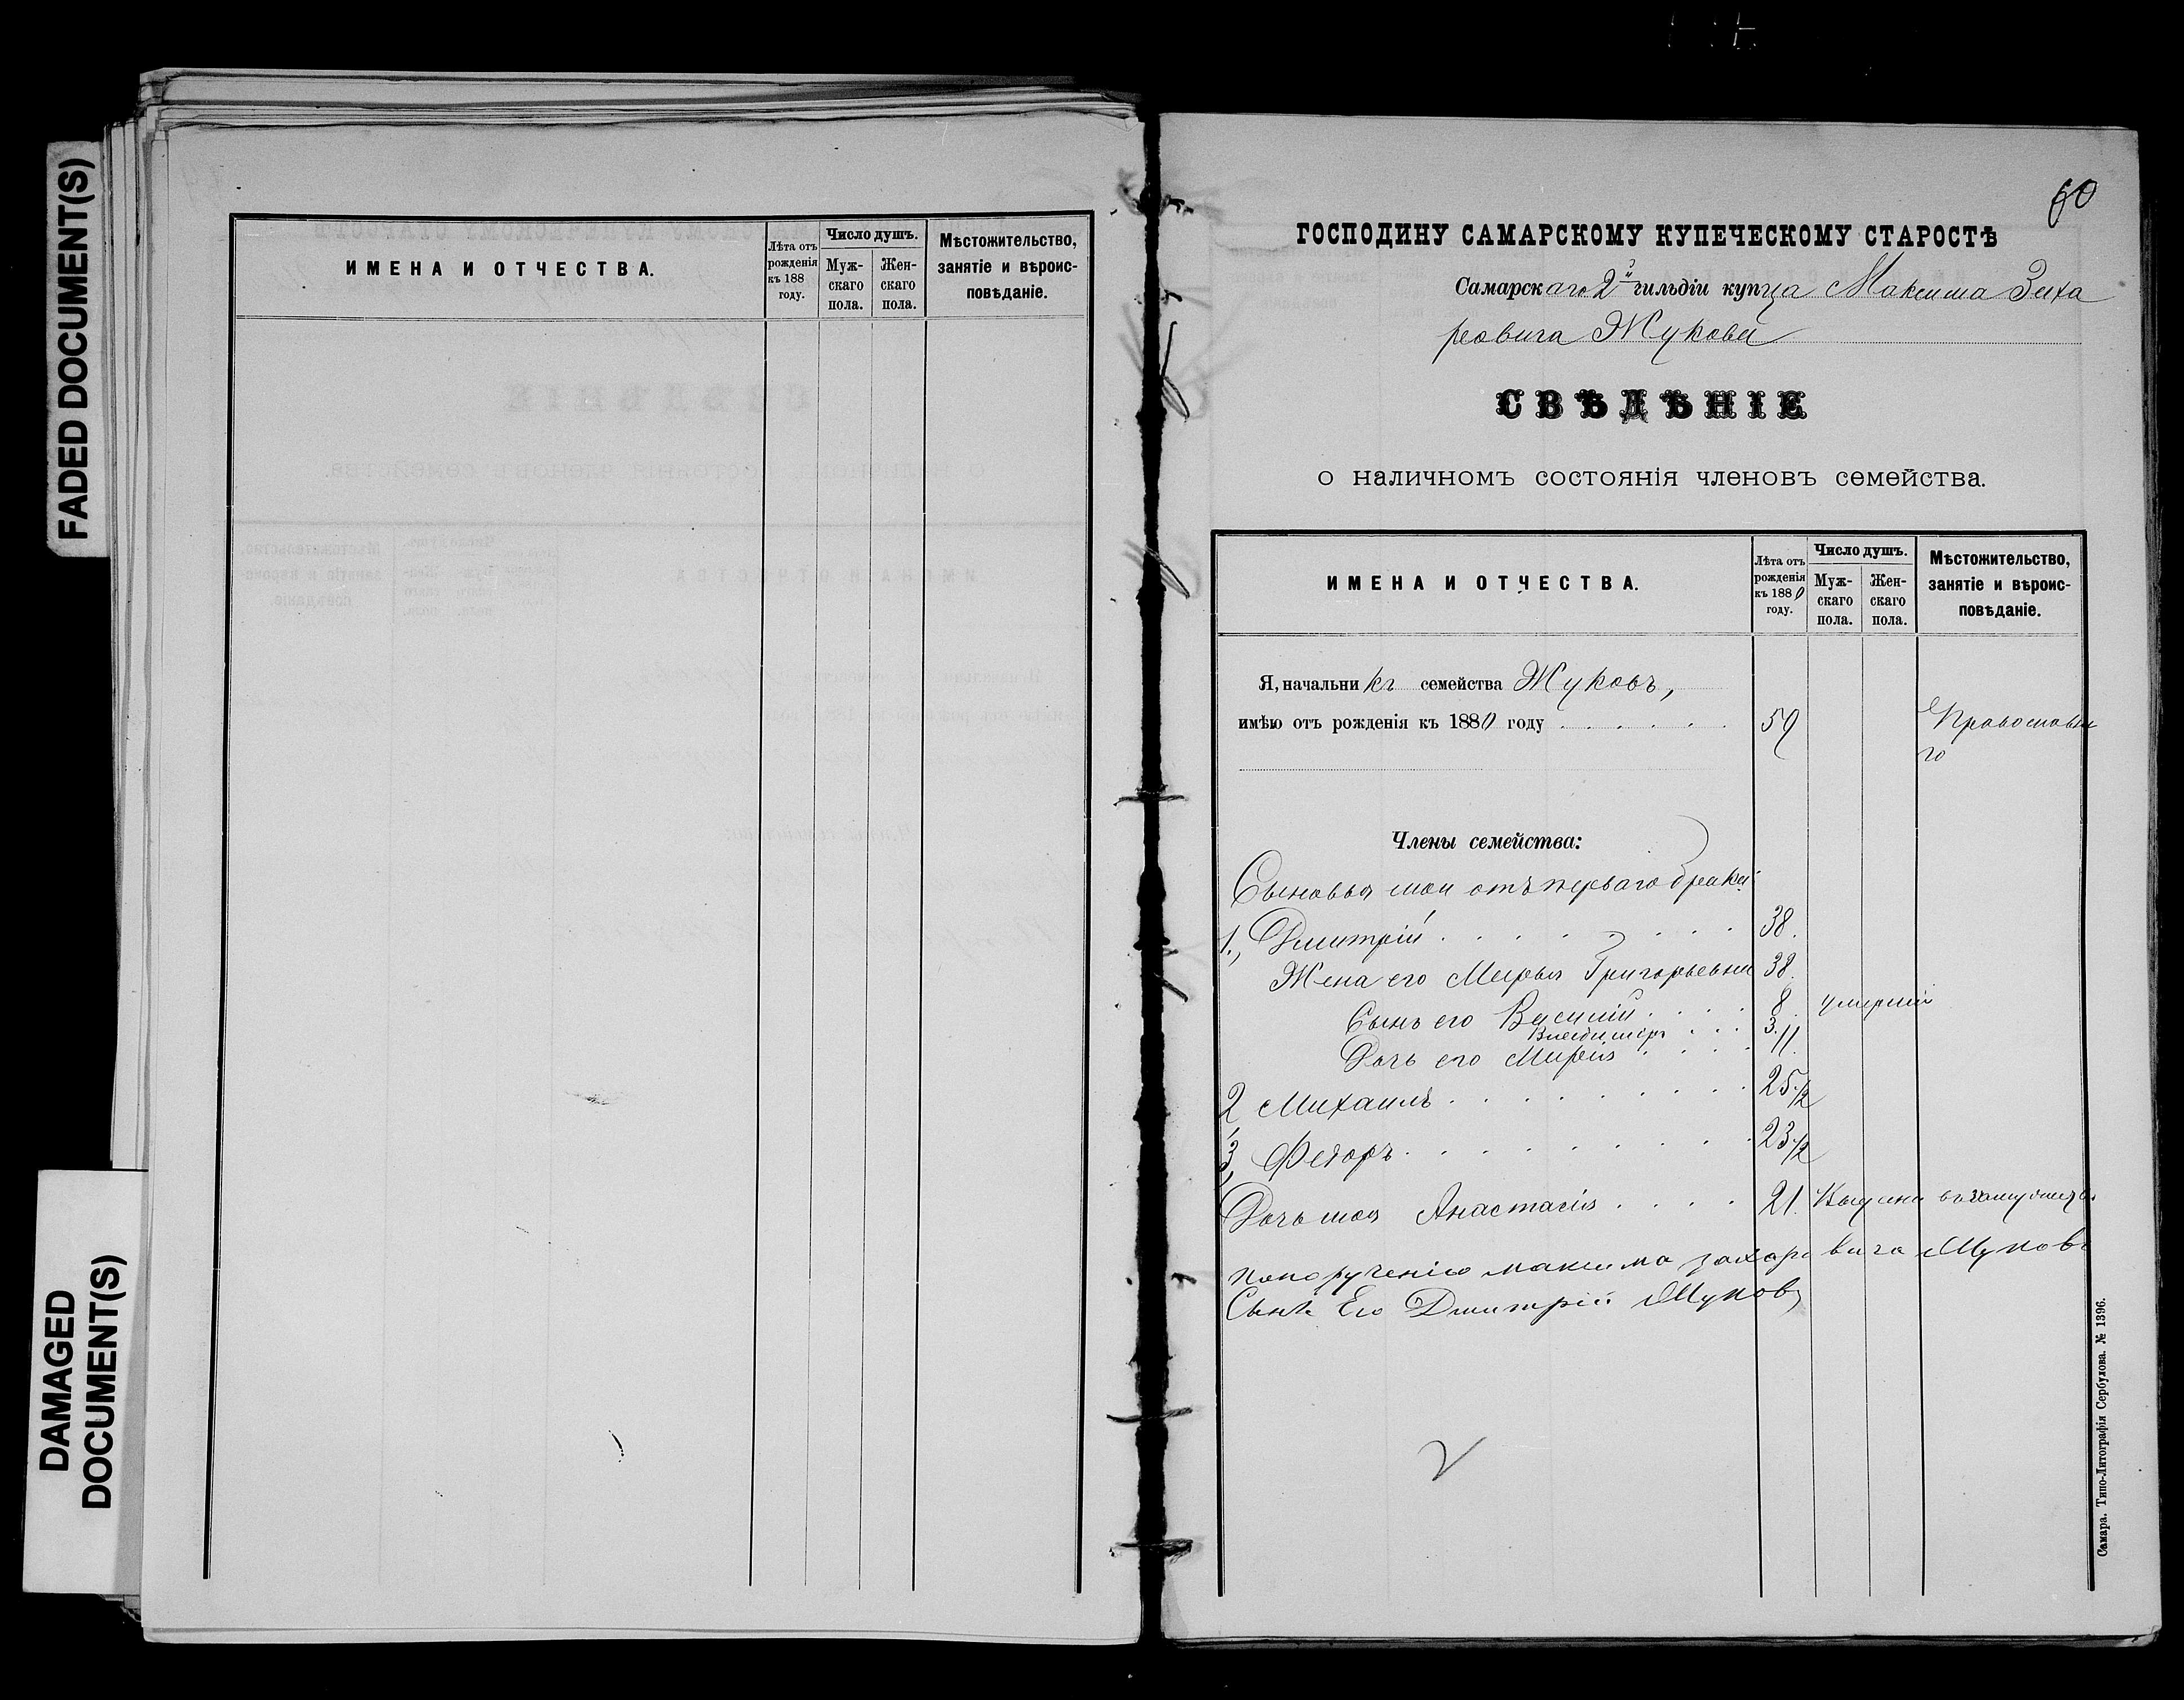 FADED DOCUMENT(S)
DAMAGED
DOCUMENT(S)
ИМЕНА И ОТЧЕСТВА.
Лѣта отъ рожденія къ 188 году.
Число душъ.
Мужскаго пола.
Женскаго пола.
Мѣстожительство, занятіе и вѣроисповѣданіе.
60
ГОСПОДИНУ САМАРСКОМУ КУПЕЧЕСКОМУ СТАРОСТѢ
Самарскаго 2й гильдіи купца Максима Заха
ровича Жукова
СВѢДѢНІЕ
о наличномъ состоянія членовъ семейства.
ИМЕНА И ОТЧЕСТВА.
Лѣта отъ рожденія къ 1880 году.
Число душъ.
Мужскаго пола.
Женскаго пола.
Мѣстожительство, занятіе и вѣроисповѣданіе.
Я, начальникъ семейства Жуковъ,
имѣю отъ рожденія къ 1880 году 59 Православна
го
Члены семейства:
Сыновья мои отъ перваго брака
1., Дмитрій 38.
Жена его Марья Григорьевна 38.
Сынъ его Василій 8. умерший
Владиміръ 3.
Дочь его Марія 11.
2, Михаилъ 25 1/2
3, Федоръ 23 1/2
Дочь моя Анастасія 21. Выдана въ замужество
По порученію максима захаровича Жукова
Сынъ Его Дмитрій Жуковъ
Самара. Типо-Литографія Сербулова. № 1396.